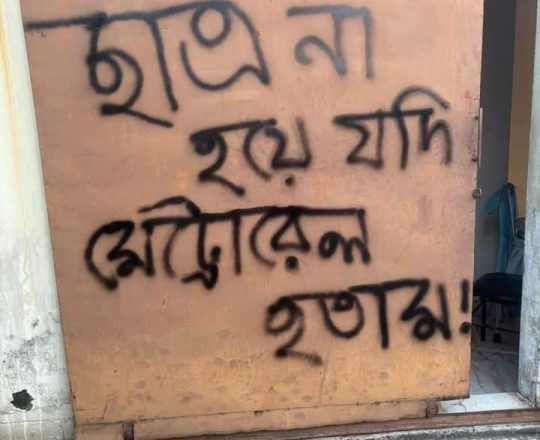 ছাত্র না
হয়ে যদি
মেট্রোরেল
হতাম!